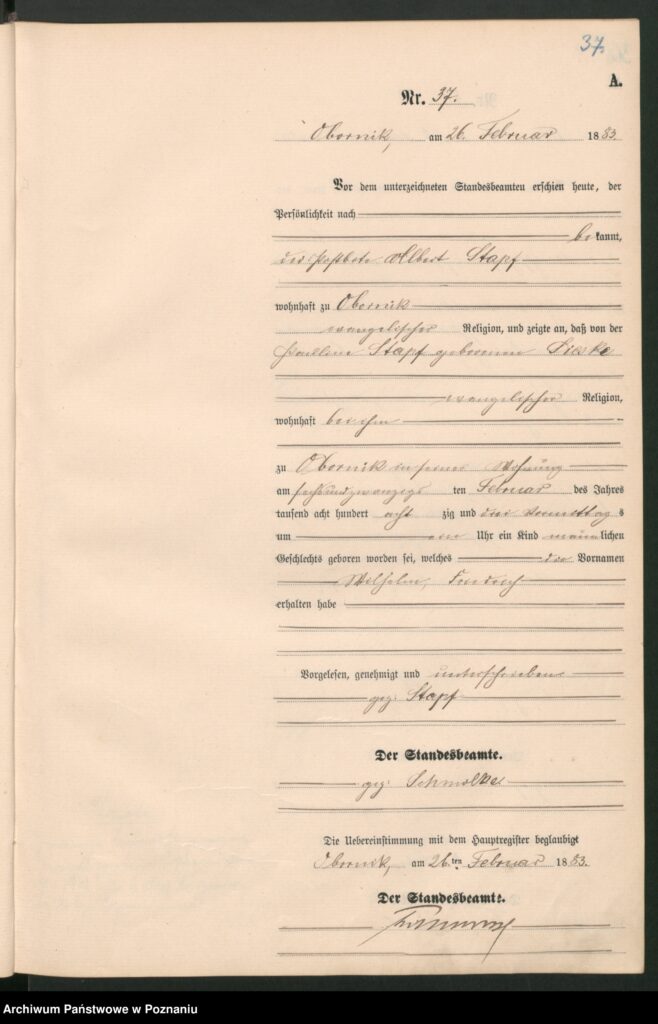 37.
A.
Nr. 37.
Obornik, am 26. Februar 1883.
Vor dem unterzeichneten Standesbeamten erschien heute, der
Persönlichkeit nach
bekannt,
der Postbote Albert Stapf
wohnhaft zu Obornik
evangelischer Religion, und zeigte an, daß von der
Stapf geborenen Lieske
evangelischer Religion,
wohnhaft bei ihm
zu Obornik in seiner Wohnung
am sechsundzwanzigs ten Februar des Jahres
tausend acht hundert acht zig und drei Vormittag s
um Uhr ein Kind männlichen
Geschlechts geboren worden sei, welches die Vornamen
Wilhelm, Friedrich
erhalten habe
Vorgelesen, genehmigt und unterschrieben
gez: Stapf
Der Standesbeamte.
gez: Schmolke
Die Uebereinstimmung mit dem Hauptregister beglaubigt
Obornik, am 26.ten Februar 1883.
Der Standesbeamte.
Archiwum Państwowe w Poznaniu